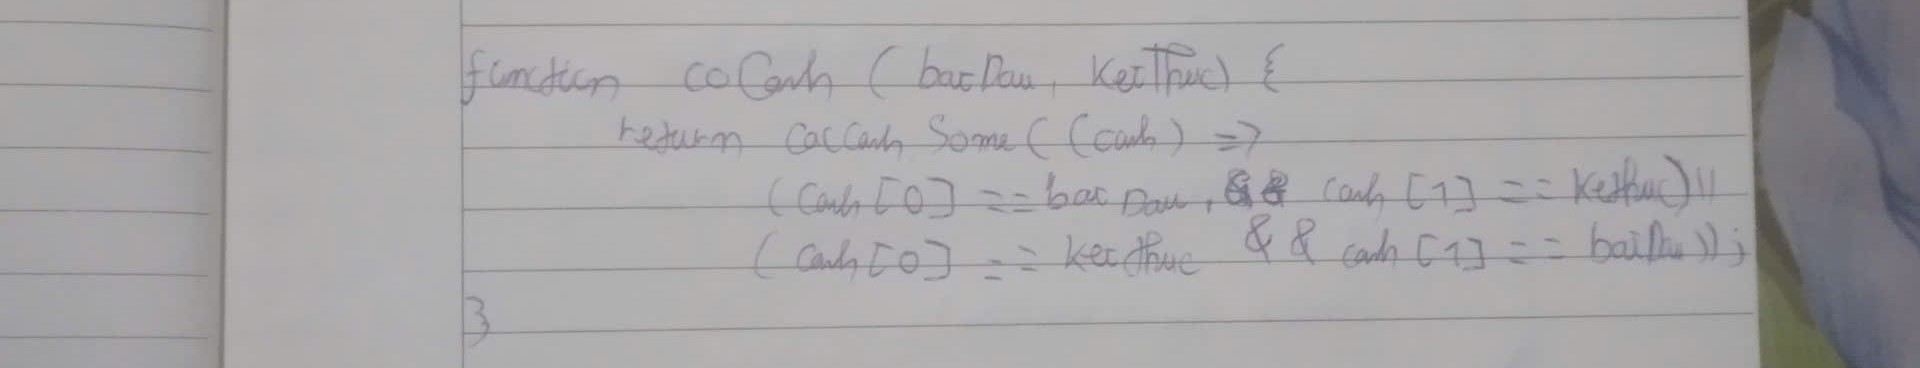 function coCanh (batDau, KetThuc) {
return CacCanh Some ( (canh) =>
(Canh [0] == bat Dau, && canh [1] == Ketthuc) ||
(Canh [0] == Ket thuc && canh [1] == batDau));
}